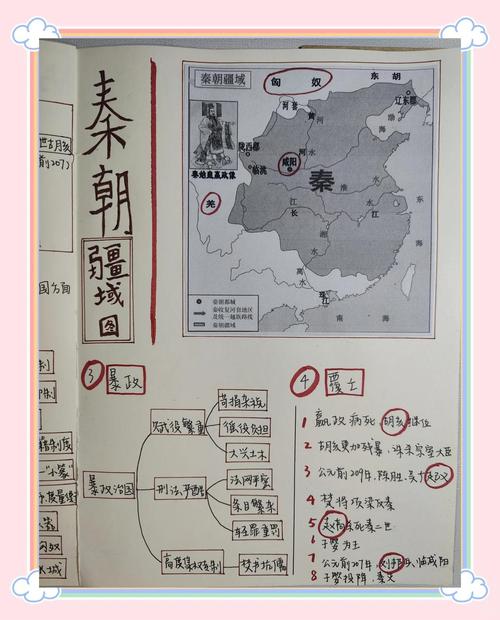 秦朝
疆域图
秦朝疆域
匈奴
东胡
辽东郡
河套
黄
河
渤
海
黄
海
陇西郡
临洮
咸阳
秦
淮
水
水
羌
长
江
江
湘
水
东
海
离
水
珠
江
南
海
秦始皇嬴政像
秦朝都城
秦朝疆域
③ 暴政
暴政治国
赋役繁重
苛捐杂税
徭役负担
大兴土木
刑法严酷
法网严密
条目繁杂
轻罪重罚
高度集权专制
焚书坑儒
④ 覆亡
1 嬴政病死,胡亥继位
2 胡亥更加残暴,诛杀宗室大臣
3 公元前209年,陈胜、吴广起义
4 楚将项梁反秦
5 赵高杀死秦二世
6 子婴为王
7 公元前207年,刘邦兵临咸阳
8 子婴投降,秦灭
前207)
匈奴